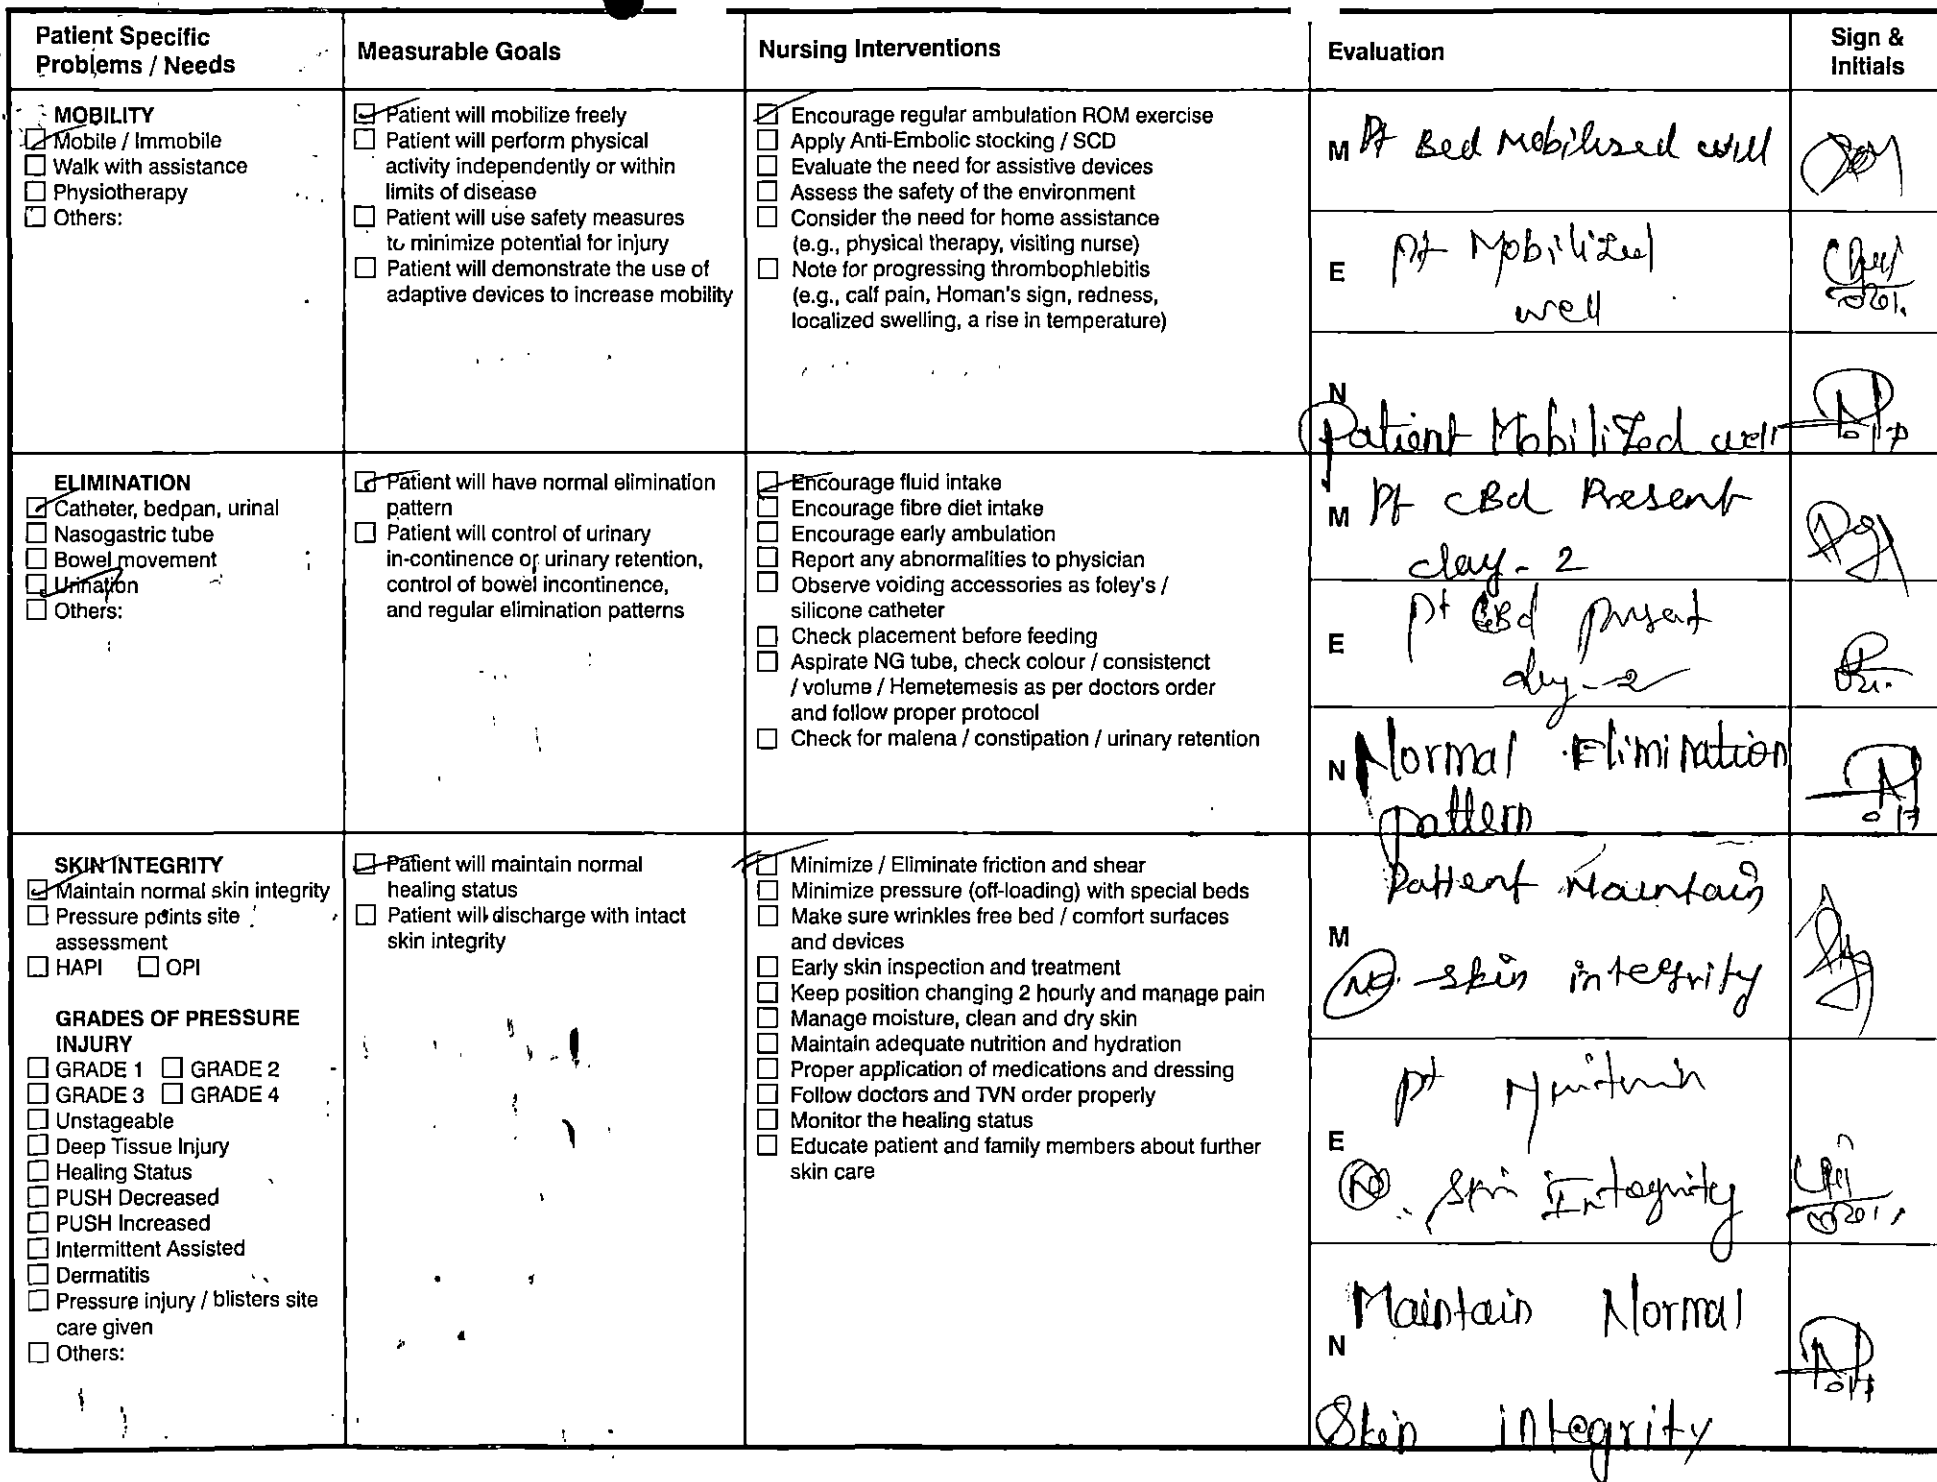 Patient Specific
Problems / Needs
Measurable Goals
Nursing Interventions
Evaluation
Sign &
Initials
MOBILITY
Mobile / Immobile
Walk with assistance
Physiotherapy
Others:
Patient will mobilize freely
Patient will perform physical
activity independently or within
limits of disease
Patient will use safety measures
to minimize potential for injury
Patient will demonstrate the use of
adaptive devices to increase mobility
Encourage regular ambulation ROM exercise
Apply Anti-Embolic stocking / SCD
Evaluate the need for assistive devices
Assess the safety of the environment
Consider the need for home assistance
(e.g., physical therapy, visiting nurse)
Note for progressing thrombophlebitis
(e.g., calf pain, Homan's sign, redness,
localized swelling, a rise in temperature)
M Pt Bed Mobilized well
E Pt Mobilized
well
N
Patient Mobilized well
ELIMINATION
Catheter, bedpan, urinal
Nasogastric tube
Bowel movement
Urination
Others:
Patient will have normal elimination
pattern
Patient will control of urinary
in-continence or urinary retention,
control of bowel incontinence,
and regular elimination patterns
Encourage fluid intake
Encourage fibre diet intake
Encourage early ambulation
Report any abnormalities to physician
Observe voiding accessories as foley's /
silicone catheter
Check placement before feeding
Aspirate NG tube, check colour / consistenct
/ volume / Hemetemesis as per doctors order
and follow proper protocol
Check for malena / constipation / urinary retention
M Pt CBd Present
day - 2
E Pt CBd present
day - 2
N Normal Elimination
pattern
SKIN INTEGRITY
Maintain normal skin integrity
Pressure points site
assessment
HAPI OPI
GRADES OF PRESSURE
INJURY
GRADE 1 GRADE 2
GRADE 3 GRADE 4
Unstageable
Deep Tissue Injury
Healing Status
PUSH Decreased
PUSH Increased
Intermittent Assisted
Dermatitis
Pressure injury / blisters site
care given
Others:
Patient will maintain normal
healing status
Patient will discharge with intact
skin integrity
Minimize / Eliminate friction and shear
Minimize pressure (off-loading) with special beds
Make sure wrinkles free bed / comfort surfaces
and devices
Early skin inspection and treatment
Keep position changing 2 hourly and manage pain
Manage moisture, clean and dry skin
Maintain adequate nutrition and hydration
Proper application of medications and dressing
Follow doctors and TVN order properly
Monitor the healing status
Educate patient and family members about further
skin care
Patient Maintain
M
skin integrity
Pt Maintain
E
N skin Integrity
Maintain Normal
N
Skin integrity